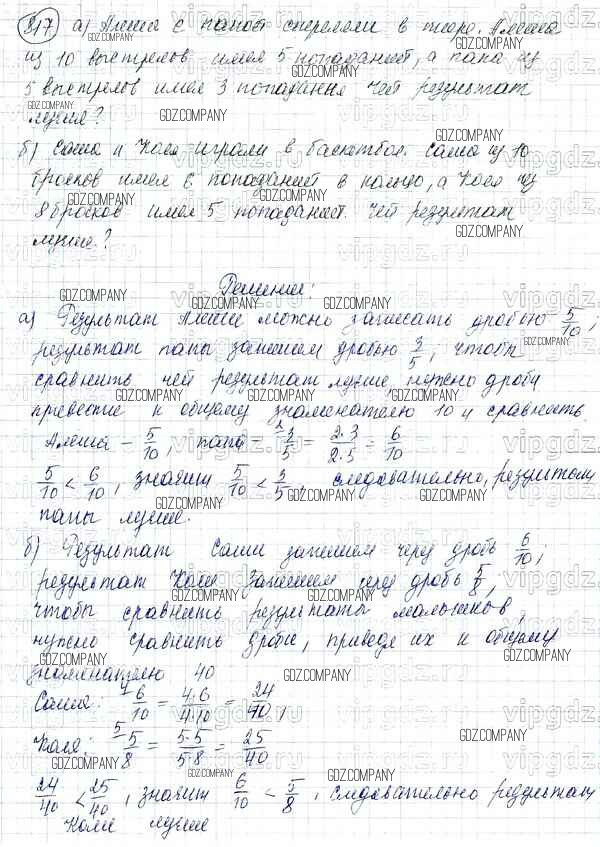 817 а) Алеша с папой стреляли в тире. Алеша
из 10 выстрелов имел 5 попаданий, а папа из
5 выстрелов имел 3 попадания. Чей результат
лучше?
б) Саша и Коля играли в баскетбол. Саша из 10
бросков имел 6 попаданий в кольцо, а Коля из
8 бросков имел 5 попаданий. Чей результат
лучше?
Решение:
а) Результат Алеши можно записать дробью 5/10,
результат папы запишем дробью 3/5, чтобы
сравнить чей результат лучше, нужно дроби
привести к общему знаменателю 10 и сравнить
Алеша – 5/10, папа = 2 3/5 = 2·3/2·5 = 6/10
5/10 < 6/10, значит 5/10 < 3/5, следовательно, результат
папы лучше.
б) Результат Саши запишем через дробь 6/10,
результат Коли запишем через дробь 5/8,
чтобы сравнить результаты мальчиков,
нужно сравнить дроби, приведя их к общему
знаменателю 40
Саша: 4 6/10 = 4·6/4·10 = 24/40,
Коля: 5 5/8 = 5·5/5·8 = 25/40
24/40 < 25/40, значит 6/10 < 5/8, следовательно результат
Коли лучше
GDZ.COMPANY
vipgdz.ru